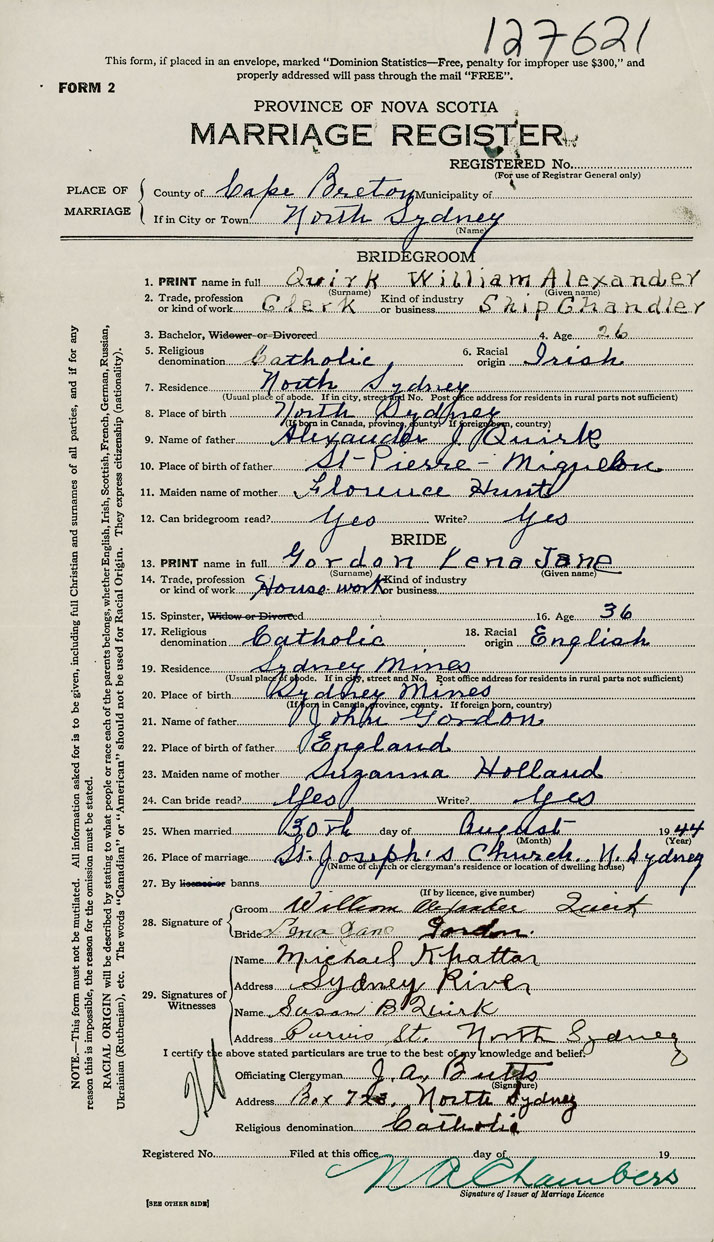 127621
This form, if placed in an envelope, marked "Dominion Statistics—Free, penalty for improper use $300," and
properly addressed will pass through the mail "FREE".
FORM 2
PROVINCE OF NOVA SCOTIA
MARRIAGE REGISTER
REGISTERED No.
(For use of Registrar General only)
PLACE OF MARRIAGE
County of Cape Breton Municipality of
If in City or Town North Sydney
(Name)
BRIDEGROOM
1. PRINT name in full Quirk William Alexander
(Surname) (Given name)
2. Trade, profession or kind of work Clerk Kind of industry or business Ship Chandler
3. Bachelor, Widower or Divorced 4. Age 26
5. Religious denomination Catholic 6. Racial origin Irish
7. Residence North Sydney
(Usual place of abode. If in city, street and No. Post office address for residents in rural parts not sufficient)
8. Place of birth North Sydney
(If born in Canada, province, county. If foreign born, country)
9. Name of father Alexander J. Quirk
10. Place of birth of father St-Pierre - Miquelon
11. Maiden name of mother Florence Hunt
12. Can bridegroom read? Yes Write? Yes
BRIDE
13. PRINT name in full Gordon Lena Jane
(Surname) (Given name)
14. Trade, profession or kind of work House-work Kind of industry or business
15. Spinster, Widow or Divorced 16. Age 36
17. Religious denomination Catholic 18. Racial origin English
19. Residence Sydney Mines
(Usual place of abode. If in city, street and No. Post office address for residents in rural parts not sufficient)
20. Place of birth Sydney Mines
(If born in Canada, province, county. If foreign born, country)
21. Name of father John Gordon
22. Place of birth of father England
23. Maiden name of mother Suzanna Holland
24. Can bride read? Yes Write? Yes
25. When married 30th day of August 1944
(Month) (Year)
26. Place of marriage St. Joseph's Church, N. Sydney
(Name of church or clergyman's residence or location of dwelling house)
27. By licence or banns
(If by licence, give number)
28. Signature of
Groom William Alexander Quirk
Bride Lena Jane Gordon.
29. Signatures of Witnesses
Name Michael Khattar
Address Sydney River
Name Susan B Quirk
Address Purvis St. North Sydney
I certify the above stated particulars are true to the best of my knowledge and belief.
Officiating Clergyman J. A. Butts
(Signature)
Address Box 723, North Sydney
Religious denomination Catholic
Registered No. Filed at this office day of 19
N A Chambers
Signature of Issuer of Marriage Licence
[SEE OTHER SIDE]
NOTE.—This form must not be mutilated. All information asked for is to be given, including full Christian and surnames of all parties, and if for any
reason this is impossible, the reason for the omission must be stated.
RACIAL ORIGIN will be described by stating to what people or race each of the parents belongs, whether English, Irish, Scottish, French, German, Russian,
Ukrainian (Ruthenian), etc. The words "Canadian" or "American" should not be used for Racial Origin. They express citizenship (nationality).